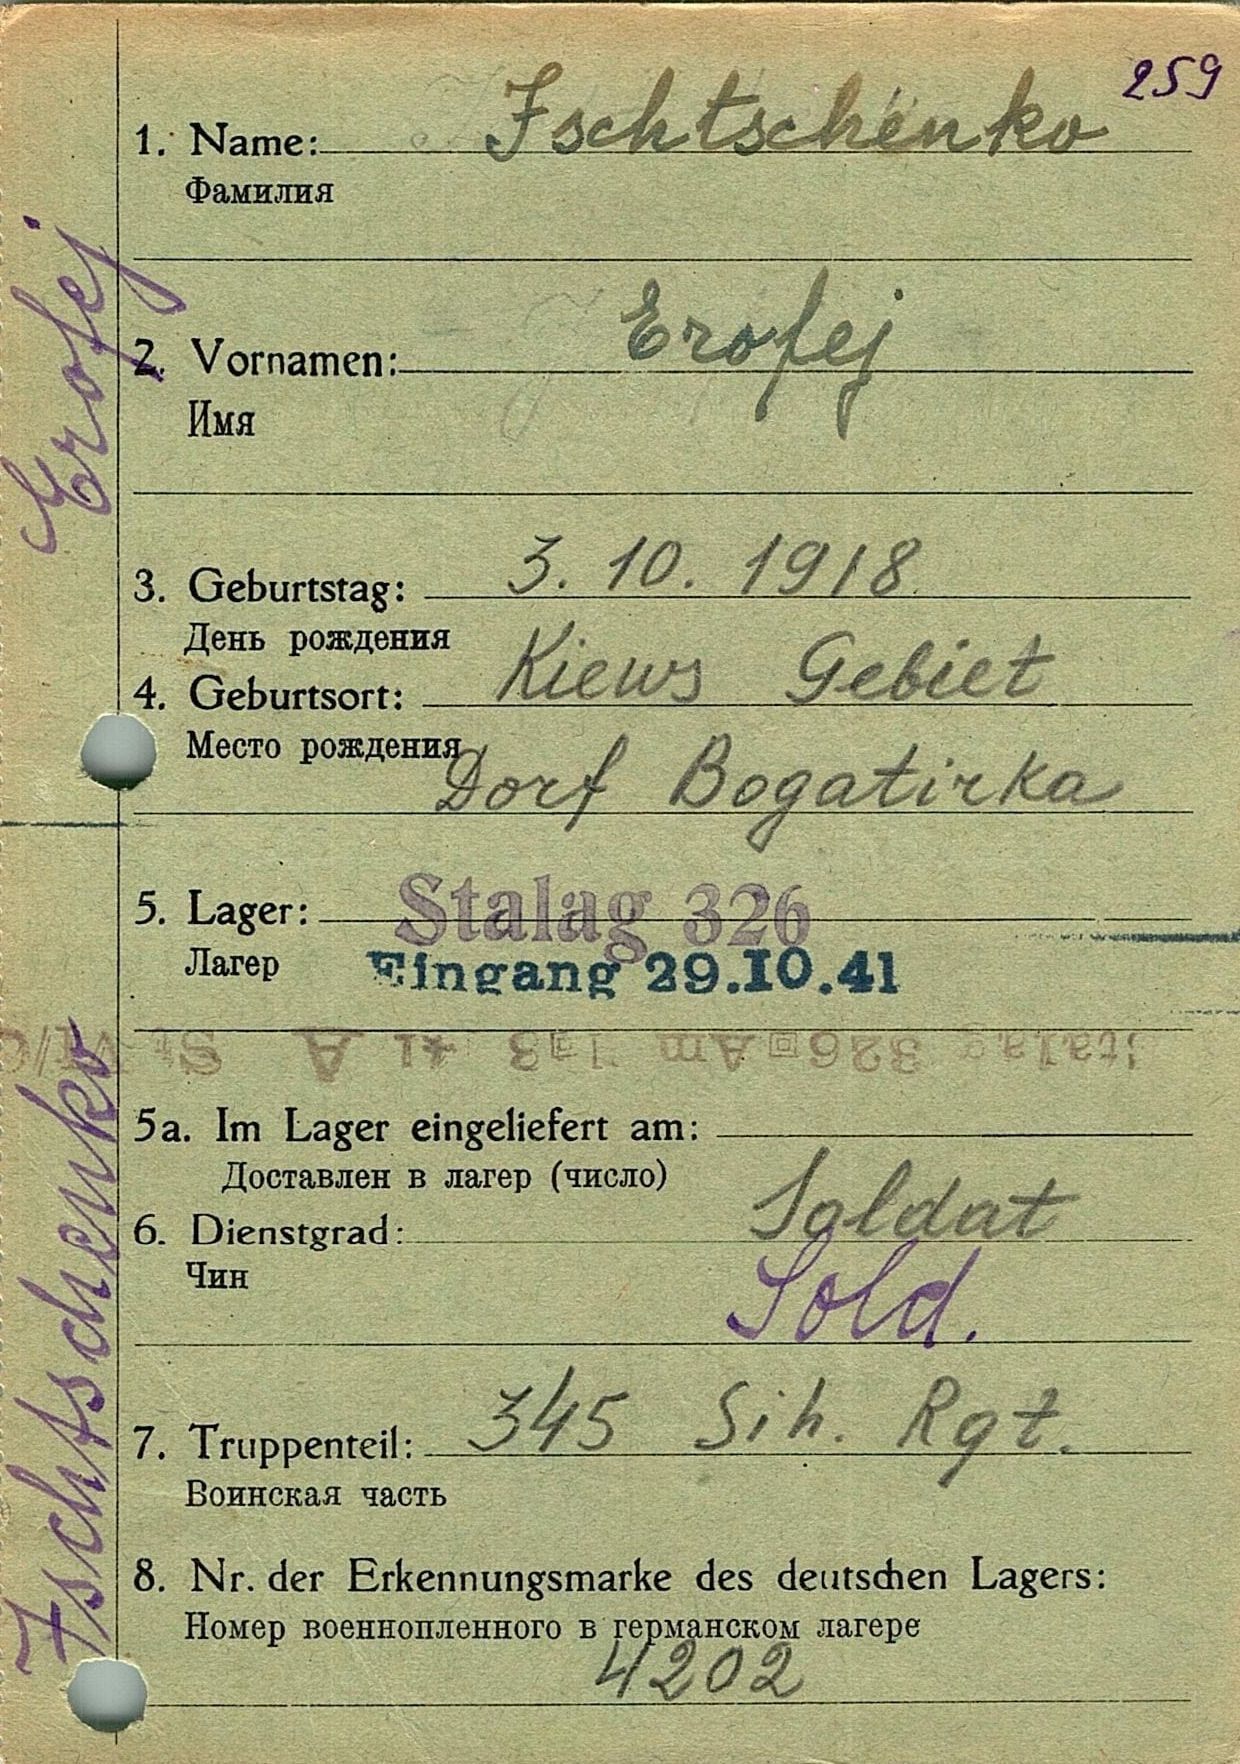 259
1. Name: Ischtschenko
Фамилия
2. Vornamen: Erofej
Имя
3. Geburtstag: 3. 10. 1918
День рождения
4. Geburtsort: Kiews Gebiet
Место рождения
Dorf Bogatirka
5. Lager: Stalag 326
Лагер Eingang 29.10.41
Stalag 326
5a. Im Lager eingeliefert am:
Доставлен в лагер (число)
6. Dienstgrad: Soldat
Чин
Sold.
7. Truppenteil: 345 Sih. Rgt.
Воинская часть
8. Nr. der Erkennungsmarke des deutschen Lagers:
Номер военнопленного в германском лагере
4202
Ischtschenko Erofej